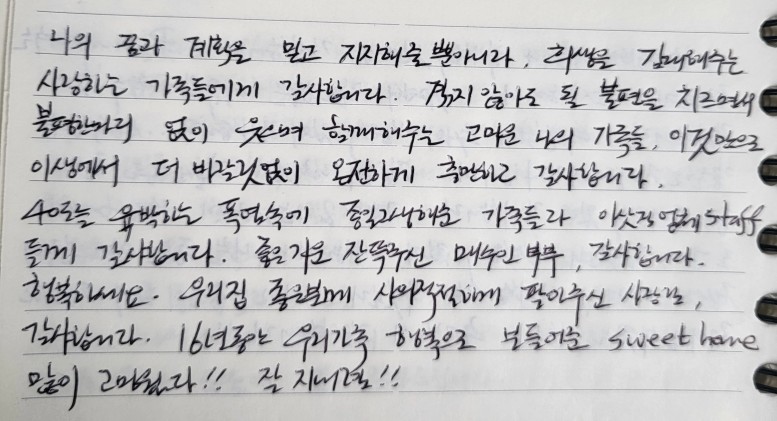 나의 꿈과 계획을 믿고 지지해줄뿐아니라, 희생을 감내해주는
사랑하는 가족들에게 감사합니다. 겪지 않아도 될 불편을 치르면서
불평한마디 없이 웃으며 함께해주는 고마운 나의 가족들, 이것만으로
이생에서 더 바랄것없이 온전하게 충만하고 감사합니다.
40도를 육박하는 폭염속에 종일고생해준 가족들과 이삿짐업체 staff
들께 감사합니다. 좋은기운 잔뜩주신 매수인 부부, 감사합니다.
행복하세요. 우리집 좋은분께 사의적절하게 팔아주신 사장님,
감사합니다. 16년동안 우리가족 행복으로 보듬어준 sweet home
많이 고마웠다!! 잘 지내렴!!